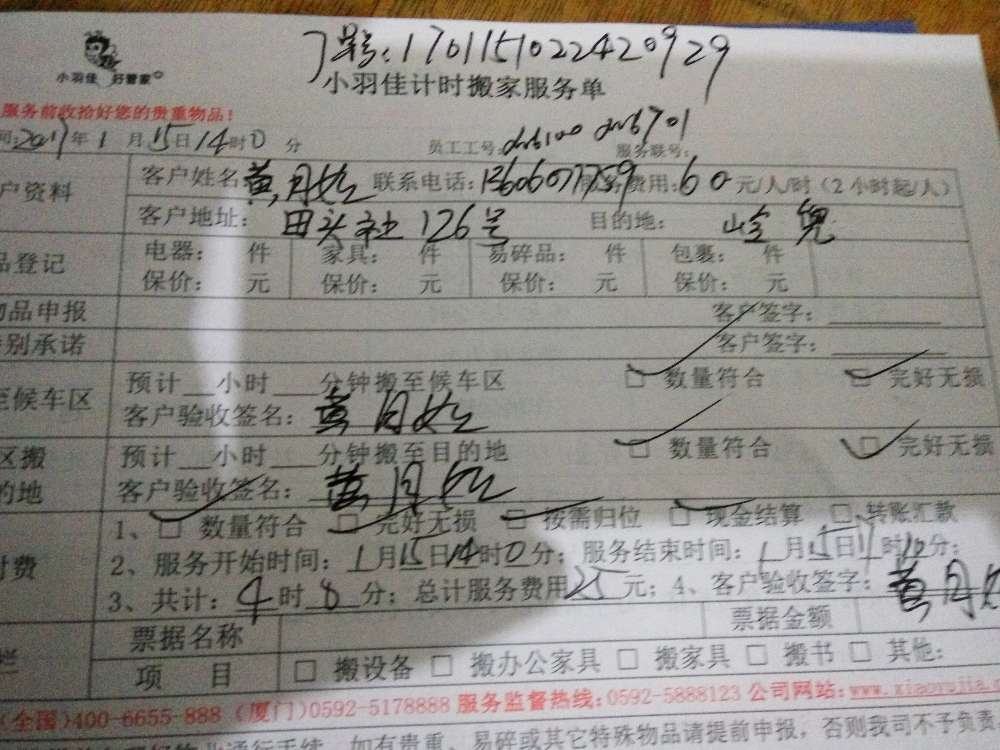 小羽佳 好管家
丁单号:1701151022420929
小羽佳计时搬家服务单
服务前收拾好您的贵重物品!
间:2017年1月15日14时0分 员工工号: 服务联号:
户资料 客户姓名 黄月 联系电话: 服务费用:60元/人/时(2小时起/人)
客户地址: 田头社126号 目的地:
品登记 电器: 件 家具: 件 易碎品: 件 包裹: 件
保价: 元 保价: 元 保价: 元 保价: 元
物品申报 客户签字:
特别承诺 客户签字:
至候车区 预计__小时___分钟搬至候车区 □ 数量符合 □ 完好无损
客户验收签名: 黄月
区搬 预计__小时___分钟搬至目的地 □ 数量符合 □ 完好无损
的地 客户验收签名: 黄月
1、□ 数量符合 □ 完好无损 □ 按需归位 □ 现金结算 □ 转账汇款
付费 2、服务开始时间:1月15日14时0分;服务结束时间:1月15日 时10分;
3、共计:4时 分;总计服务费用 元;4、客户验收签字:黄月
栏 票据名称 票据金额
项 目 □ 搬设备 □ 搬办公家具 □ 搬家具 □ 搬书 □ 其他:
(全国)400-6655-888 (厦门)0592-5178888 服务监督热线:0592-5888123 公司网站:www.xiaoyujia.
如有贵重、易碎或其它特殊物品请提前申报,否则我司不予负责